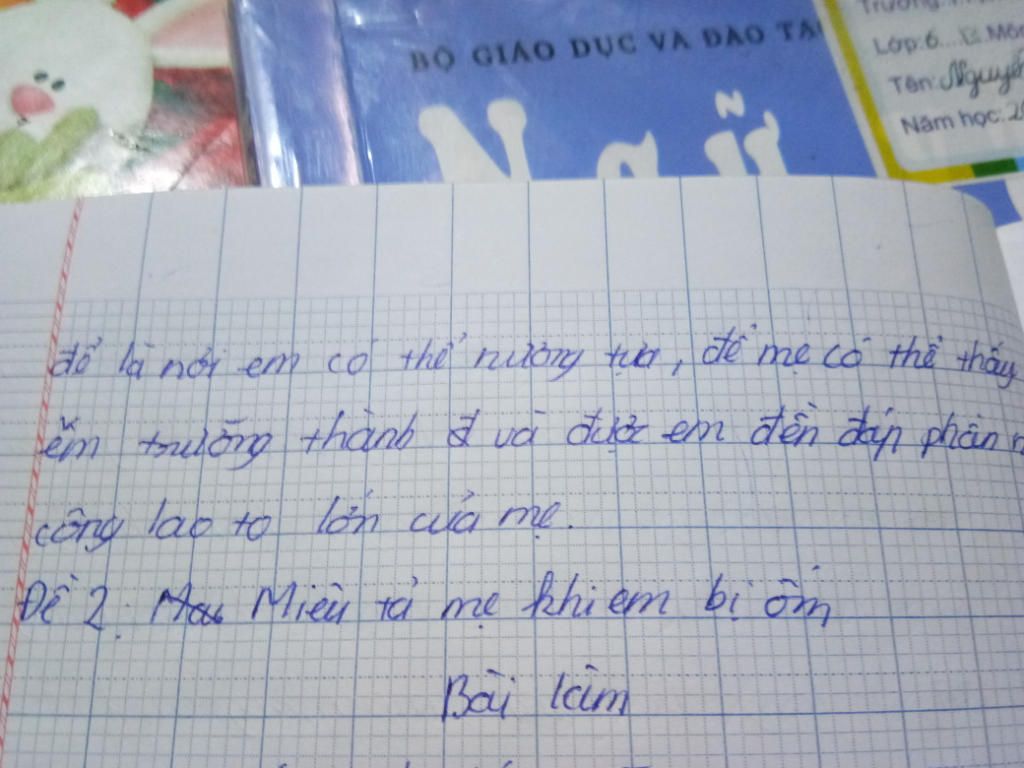 BỘ GIÁO DỤC VÀ ĐÀO TẠ
Ngữ
Trường:
Lớp: 6...B. Môn
Tên: Nguyễn
Năm học: 20
để là nơi em có thể nương tựa, để mẹ có thể thấy
em trưởng thành đ và được em đền đáp phần n
công lao to lớn của mẹ.
Đề 2: Miêu tả mẹ khi em bị ốm
Bài làm